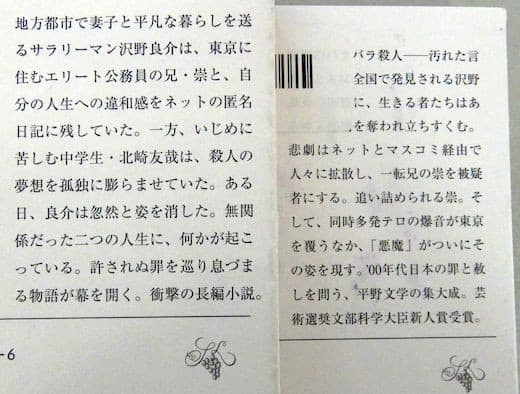 地方都市で妻子と平凡な暮らしを送
るサラリーマン沢野良介は、東京に
住むエリート公務員の兄・崇と、自
分の人生への違和感をネットの匿名
日記に残していた。一方、いじめに
苦しむ中学生・北崎友哉は、殺人の
夢想を孤独に膨らませていた。ある
日、良介は忽然と姿を消した。無関
係だった二つの人生に、何かが起こ
っている。許されぬ罪を巡り息づま
る物語が幕を開く。衝撃の長編小説。
-6
バラ殺人――汚れた言
全国で発見される沢野
に、生きる者たちはあ
を奪われ立ちすくむ。
悲劇はネットとマスコミ経由で
人々に拡散し、一転兄の崇を被疑
者にする。追い詰められる崇。そ
して、同時多発テロの爆音が東京
を覆うなか、「悪魔」がついにそ
の姿を現す。'00年代日本の罪と赦
しを問う、平野文学の集大成。芸
術選奨文部科学大臣新人賞受賞。